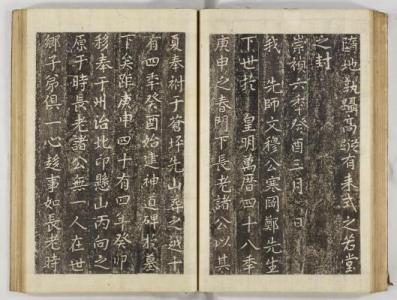 隨地執躅高㨾有來式之若堂
之封
崇禎六季癸酉三月 日
我 先師文穆公寒岡鄭先生
下世於 皇明萬曆四十八季
庚申之春門下長老諸公以其
夏奉祔于蒼坪先山葬之越十
有四季癸酉始建神道碑於墓
下矣距庚申四十有四年癸卯
移奉于州治北印懸山丙向之
原于時長老諸公無一人在世
鄉子弟俱一心趍事如長老時